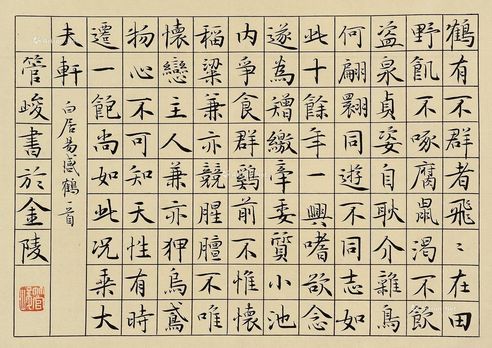 鶴有不群者飛〻在田
野飢不啄腐鼠渴不飲
盜泉貞姿自耿介雜鳥
何翩翾同遊不同志如
此十餘年一興嗜欲念
遂為矰繳牽委質小池
內爭食群鷄前不惟懷
稻粱兼亦競腥膻不唯
懷戀主人兼亦狎烏鳶
物心不可知天性有時
遷一飽尚如此況乗大
夫軒
白居易感鶴一首
管峻書於金陵